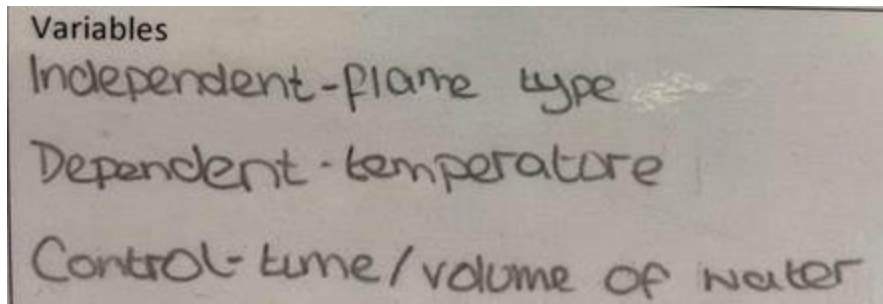 Variables
Independent-flame type
Dependent-temperature
Control-time/volume of water